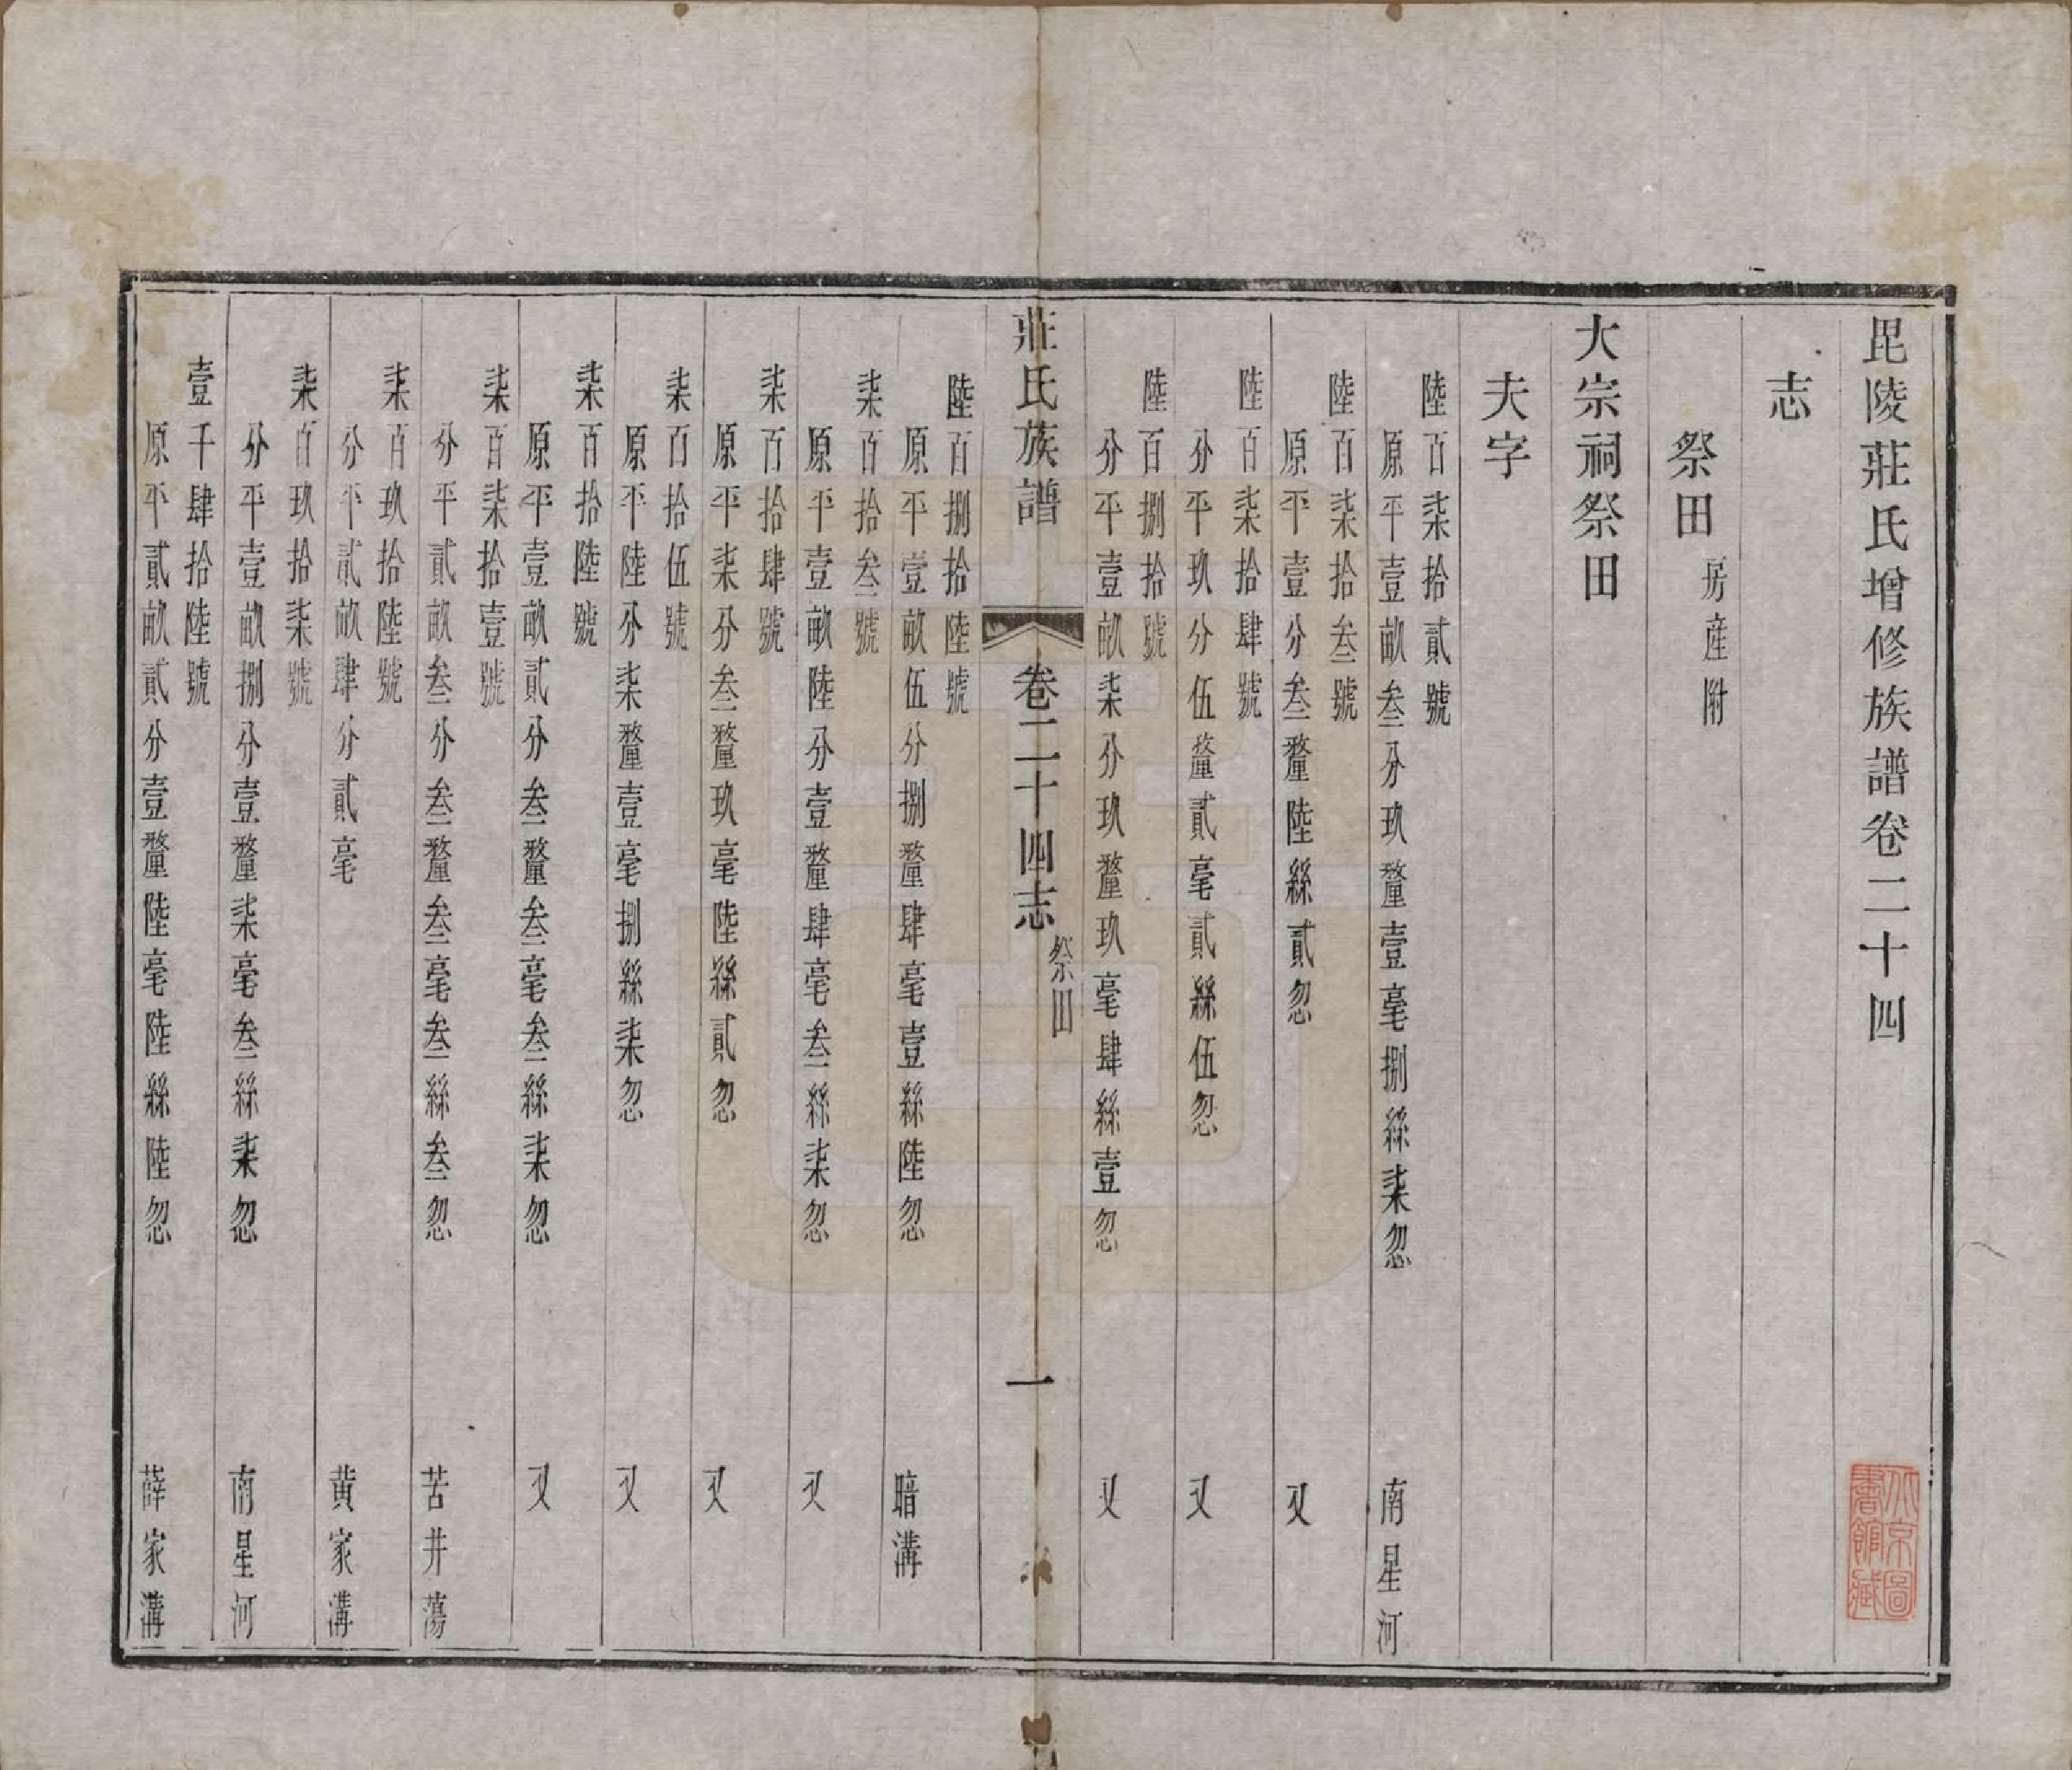 毘陵莊氏增修族譜卷二十四
志
祭田房產附
大宗祠祭田
夫字
陸百柒拾貳號
原平壹畝叁分玖釐壹毫捌絲柒忽 南星河
陸百柒拾叁號
原平壹分叁釐陸絲貳忽 又
陸百柒拾肆號
分平玖分伍釐貳毫貳絲伍忽 又
陸百捌拾號
分平壹畝柒分玖釐玖毫肆絲壹忽 又
莊氏族譜 卷二十四志 祭田 一
陸百捌拾陸號
原平壹畝伍分捌釐肆毫壹絲陸忽 暗溝
柒百拾叁號
原平壹畝陸分壹釐肆毫叁絲柒忽 又
柒百拾肆號
原平柒分叁釐玖毫陸絲貳忽 又
柒百拾伍號
原平陸分柒釐壹毫捌絲柒忽 又
柒百拾陸號
原平壹畝貳分叁釐叁毫叁絲柒忽 又
柒百柒拾壹號
分平貳畝叁分叁釐叁毫叁絲叁忽 苦井蕩
柒百玖拾陸號
分平貳畝肆分貳毫 黃家溝
柒百玖拾柒號
分平壹畝捌分壹釐柒毫叁絲柒忽 南星河
壹千肆拾陸號
原平貳畝貳分壹釐陸毫陸絲陸忽 薛家溝
北京圖書館藏